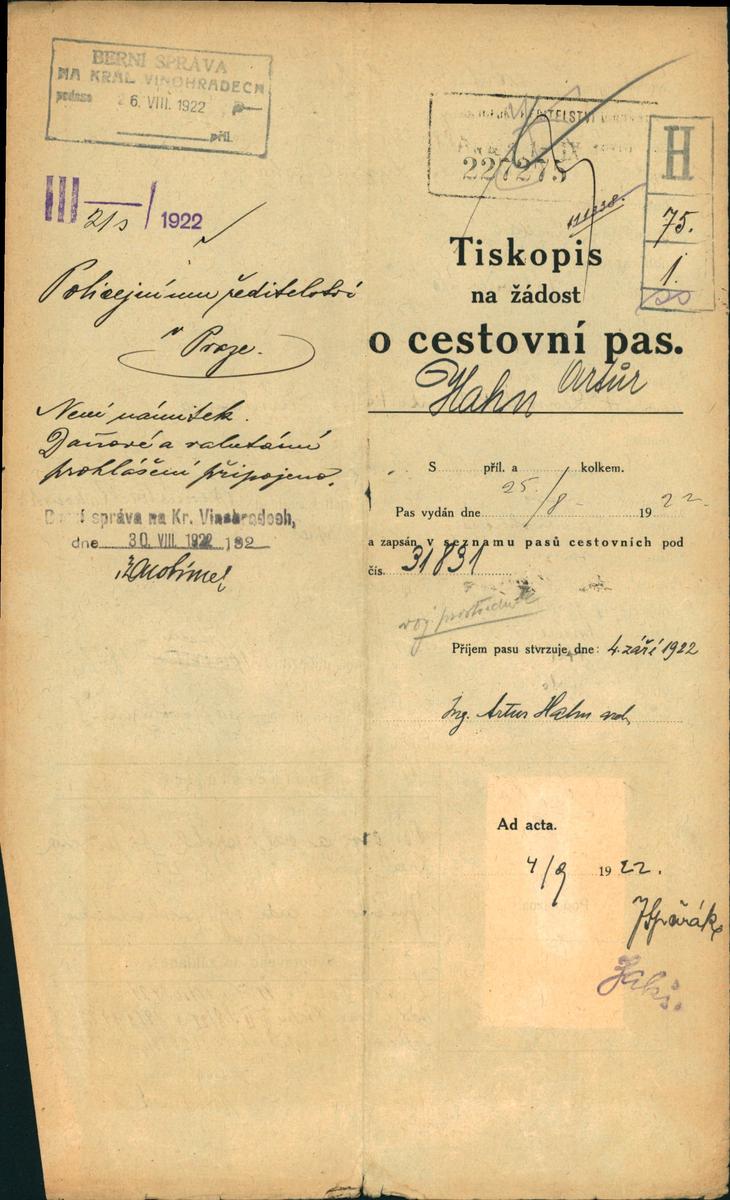 BERNÍ SPRÁVA
NA KRÁL VINOHRADECH
podáno 26. VIII. 1922
příl.
III 21s / 1922
Policejnímu ředitelství
v Praze.
Není námitek.
Daňové a valutární
prohlášení připojeno.
Berní správa na Kr. Vinohradech,
dne 30. VIII. 1922 192
227275
H
75.
1.
Tiskopis
na žádost
o cestovní pas.
Hahn Artur
S příl. a kolkem.
Pas vydán dne 25./8. 1922
a zapsán v seznamu pasů cestovních pod
čís. 31831
Příjem pasu stvrzuje, dne: 4. září 1922
Ing. Artur Hahn
Ad acta.
4/9 1922.